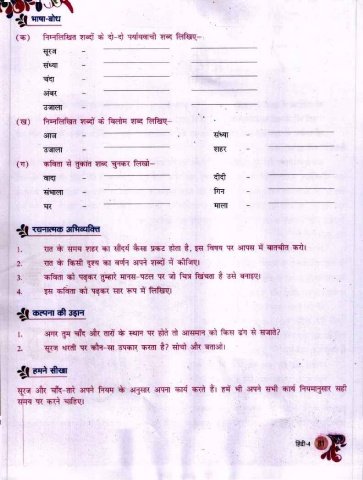 भाषा-बोध
(क) निम्नलिखित शब्दों के दो-दो पर्यायवाची शब्द लिखिए–
सूरज –
संध्या –
चंदा –
अंबर –
उजाला –
(ख) निम्नलिखित शब्दों के विलोम शब्द लिखिए–
आज – संध्या –
उजाला – शहर –
(ग) कविता से तुकांत शब्द चुनकर लिखो–
वादा – दीदी –
संचाला – गिन –
घर – माला –
रचनात्मक अभिव्यक्ति
1. रात के समय शहर का सौंदर्य कैसा प्रकट होता है, इस विषय पर आपस में बातचीत करो।
2. रात के किसी दृश्य का वर्णन अपने शब्दों में कीजिए।
3. कविता को पढ़कर तुम्हारे मानस-पटल पर जो चित्र खिंचता है उसे बनाइए।
4. इस कविता को पढ़कर सार रूप में लिखिए।
कल्पना की उड़ान
1. अगर तुम चाँद और तारों के स्थान पर होते तो आसमान को किस ढंग से सजाते?
2. सूरज धरती पर कौन-सा उपकार करता है? सोचो और बताओ।
हमने सीखा
सूरज और चाँद-तारे अपने नियम के अनुसार अपना कार्य करते हैं। हमें भी अपने सभी कार्य नियमानुसार सही
समय पर करने चाहिए।
हिंदी-4 81